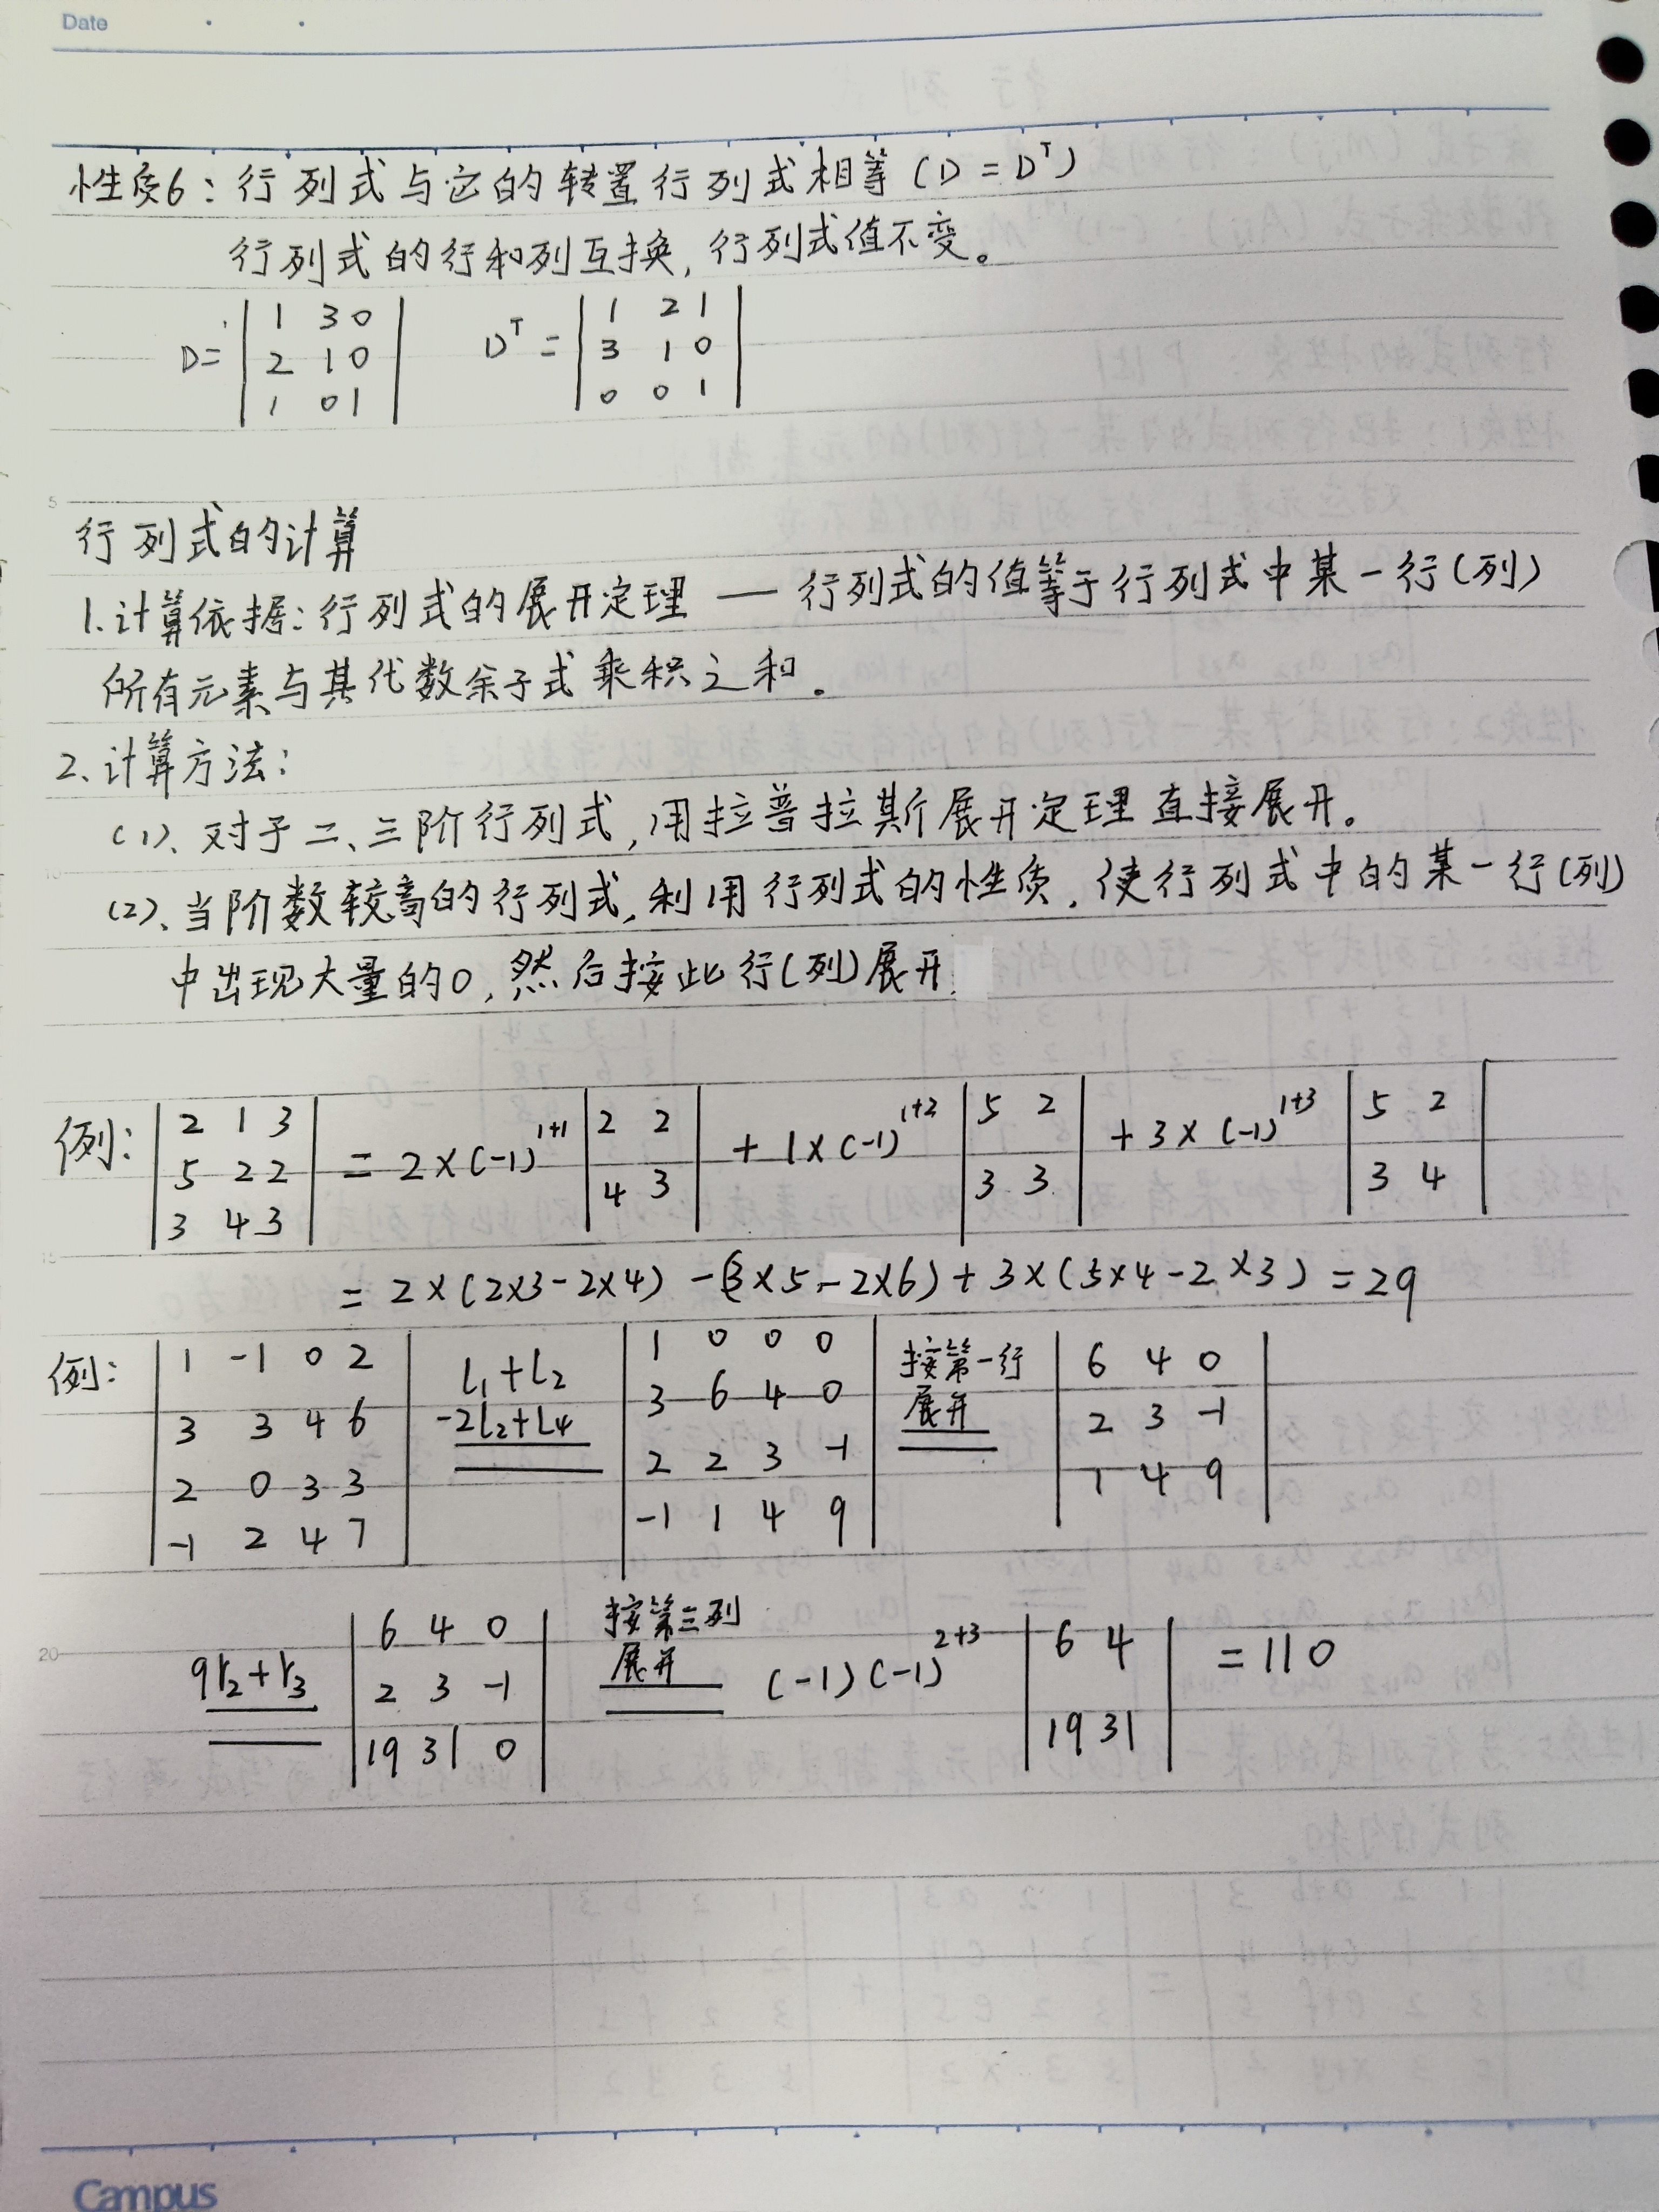 Date
性质6：行列式与它的转置行列式相等（D = Dᵀ）
行列式的行和列互换，行列式值不变。
D = | 1 3 0 | Dᵀ = | 1 2 1 |
| 2 1 0 | | 3 1 0 |
| 1 0 1 | | 0 0 1 |
5
行列式的计算
1. 计算依据：行列式的展开定理 — 行列式的值等于行列式中某一行（列）
所有元素与其代数余子式乘积之和。
2、计算方法：
（1）、对于二、三阶行列式，用拉普拉斯展开定理直接展开。
（2）、当阶数较高的行列式，利用行列式的性质，使行列式中的某一行（列）
中出现大量的0，然后按此行（列）展开
例： | 2 1 3 | = 2×(-1)¹⁺¹ | 2 2 | + 1×(-1)¹⁺² | 5 2 | + 3×(-1)¹⁺³ | 5 2 |
| 5 2 2 | | 4 3 | | 3 3 | | 3 4 |
| 3 4 3 |
= 2×(2×3-2×4) -(3×5-2×6) + 3×(5×4-2×3) = 29
例： | 1 -1 0 2 | l₁+l₂ | 1 0 0 0 | 按第一行 | 6 4 0 |
| 3 3 4 6 | -2l₂+l₄ | 3 6 4 0 | 展开 | 2 3 -1 |
| 2 0 3 3 | | 2 2 3 -1 | | 1 4 9 |
| -1 2 4 7 | | -1 1 4 9 |
20
9r₂+r₃ | 6 4 0 | 按第三列 (-1)(-1)²⁺³ | 6 4 | = 110
| 2 3 -1 | 展开 | 19 31 |
| 19 31 0 |
Campus